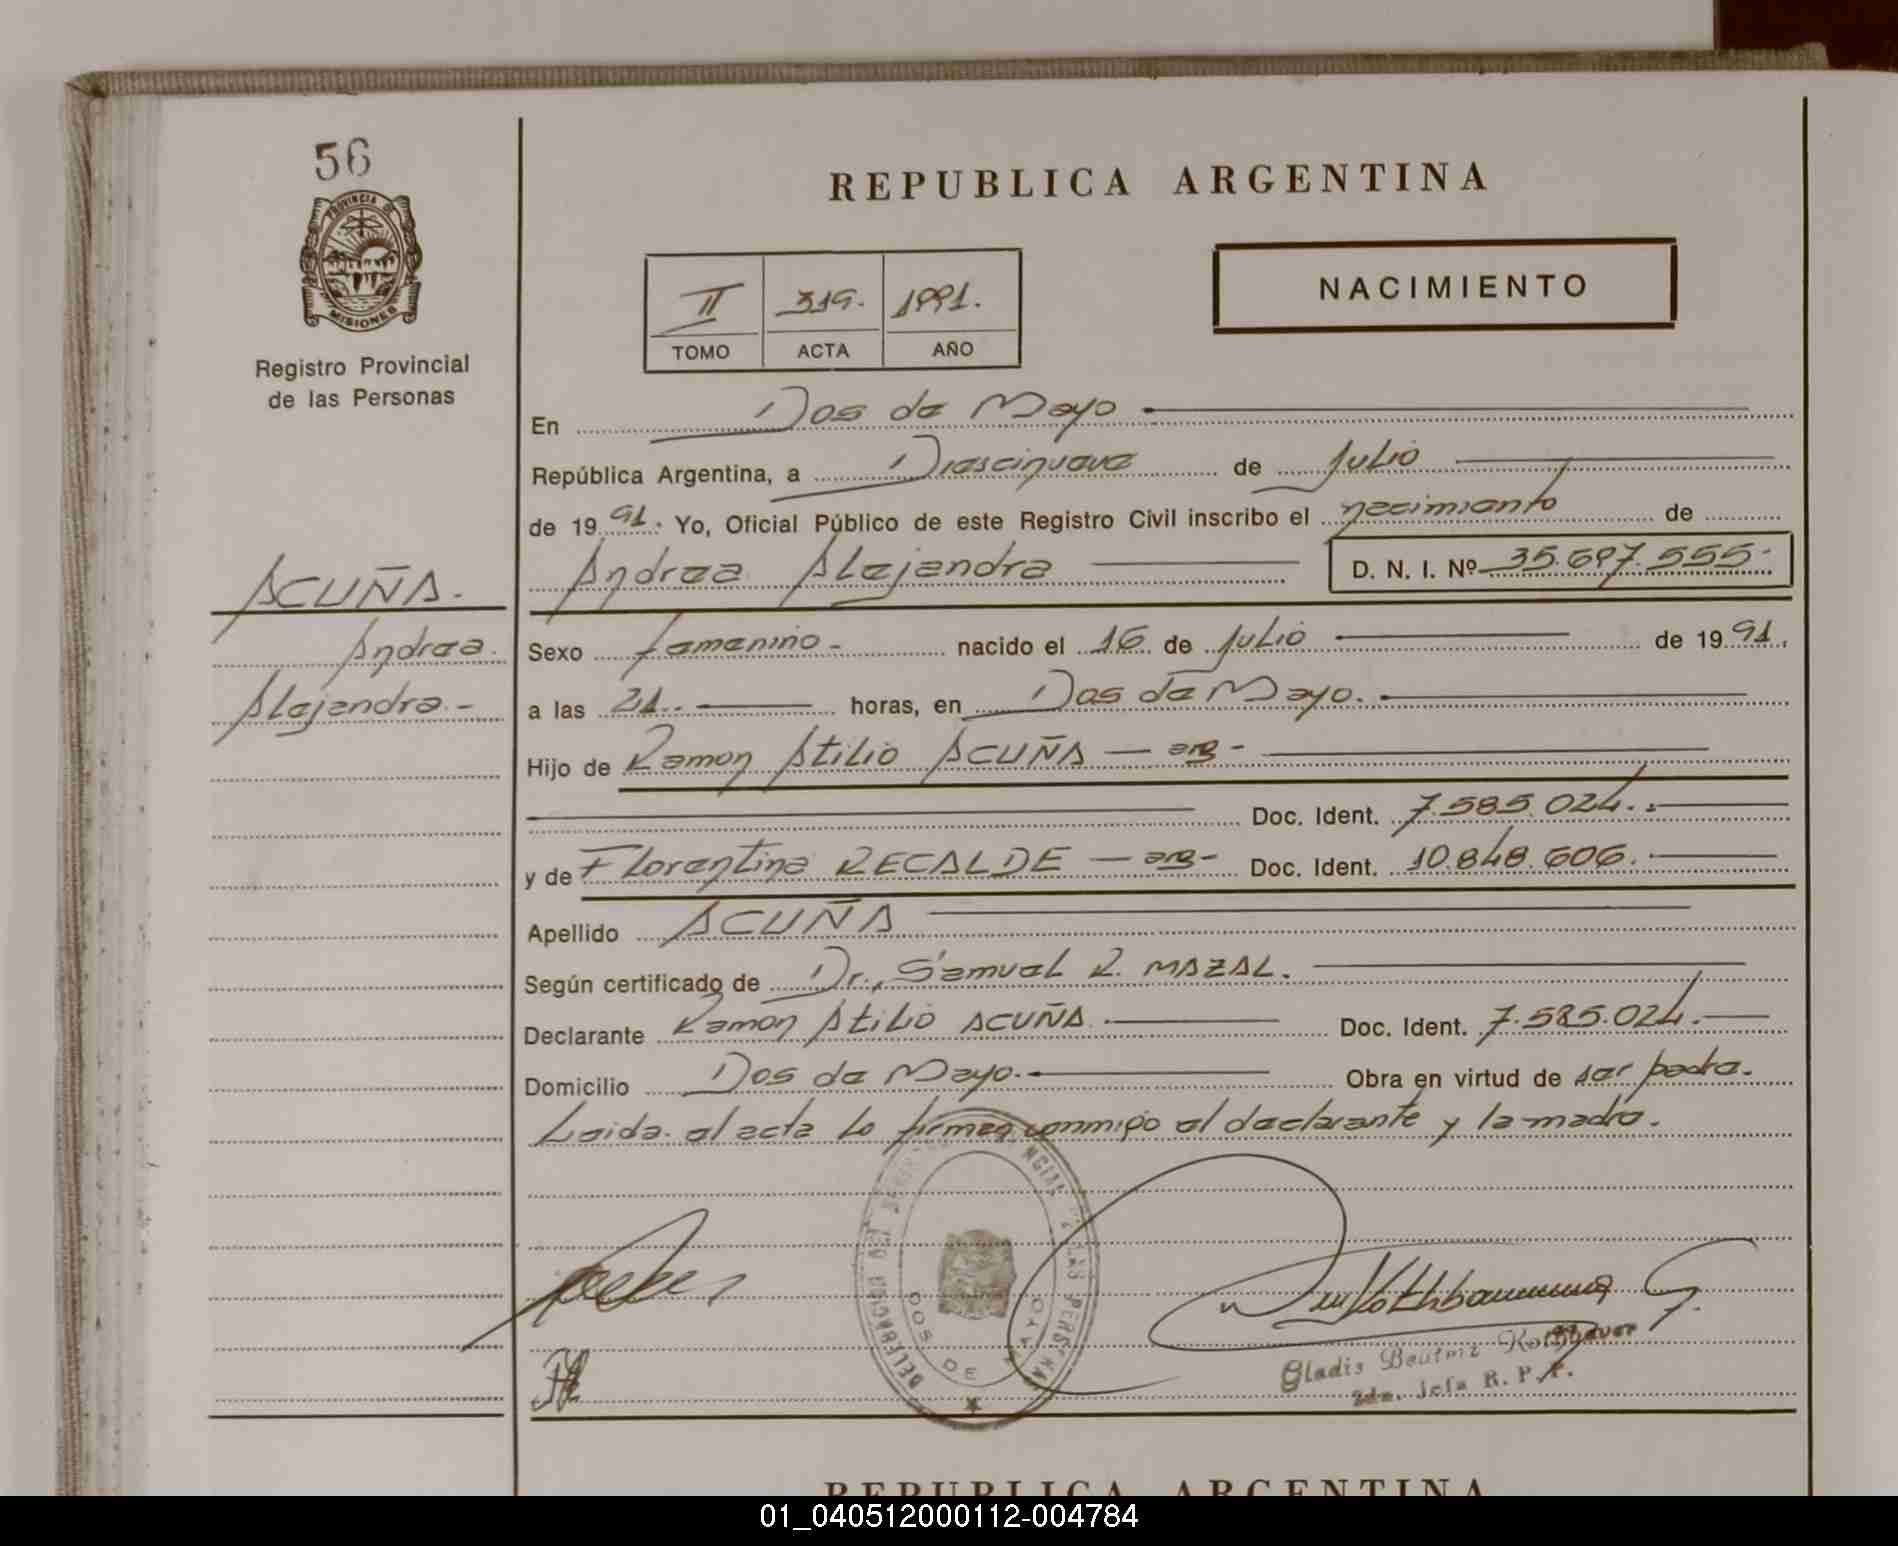 56
PROVINCIA DE
MISIONES
Registro Provincial
de las Personas
REPUBLICA ARGENTINA
II 319. 1991.
TOMO ACTA AÑO
NACIMIENTO
En Dos de Mayo
República Argentina, a Diescinueve de Julio
de 19 91. Yo, Oficial Público de este Registro Civil inscribo el necimiento de
Andrea Alejandra D. N. I. Nº 35.697.555.
ACUÑA.
Andrea
Alejandra.-
Sexo femenino- nacido el 16 de Julio de 19 91.
a las 21.. horas, en Dos de Mayo.
Hijo de Ramon Atilio ACUÑA — arg -
Doc. Ident. 7.585.024..
y de Florentina RECALDE — arg - Doc. Ident. 10.848.606.
Apellido ACUÑA
Según certificado de Dr., Samuel R. MAZAL.
Declarante Ramon Atilio ACUÑA. Doc. Ident. 7.585.024.
Domicilio Dos de Mayo. Obra en virtud de ser padre.
Leida el acta lo firman conmigo el declarante y la madre.
DOS DE MAYO
Gladis Beatriz
2da. Jefa R. P. P.
REPUBLICA ARGENTINA
01_040512000112-004784